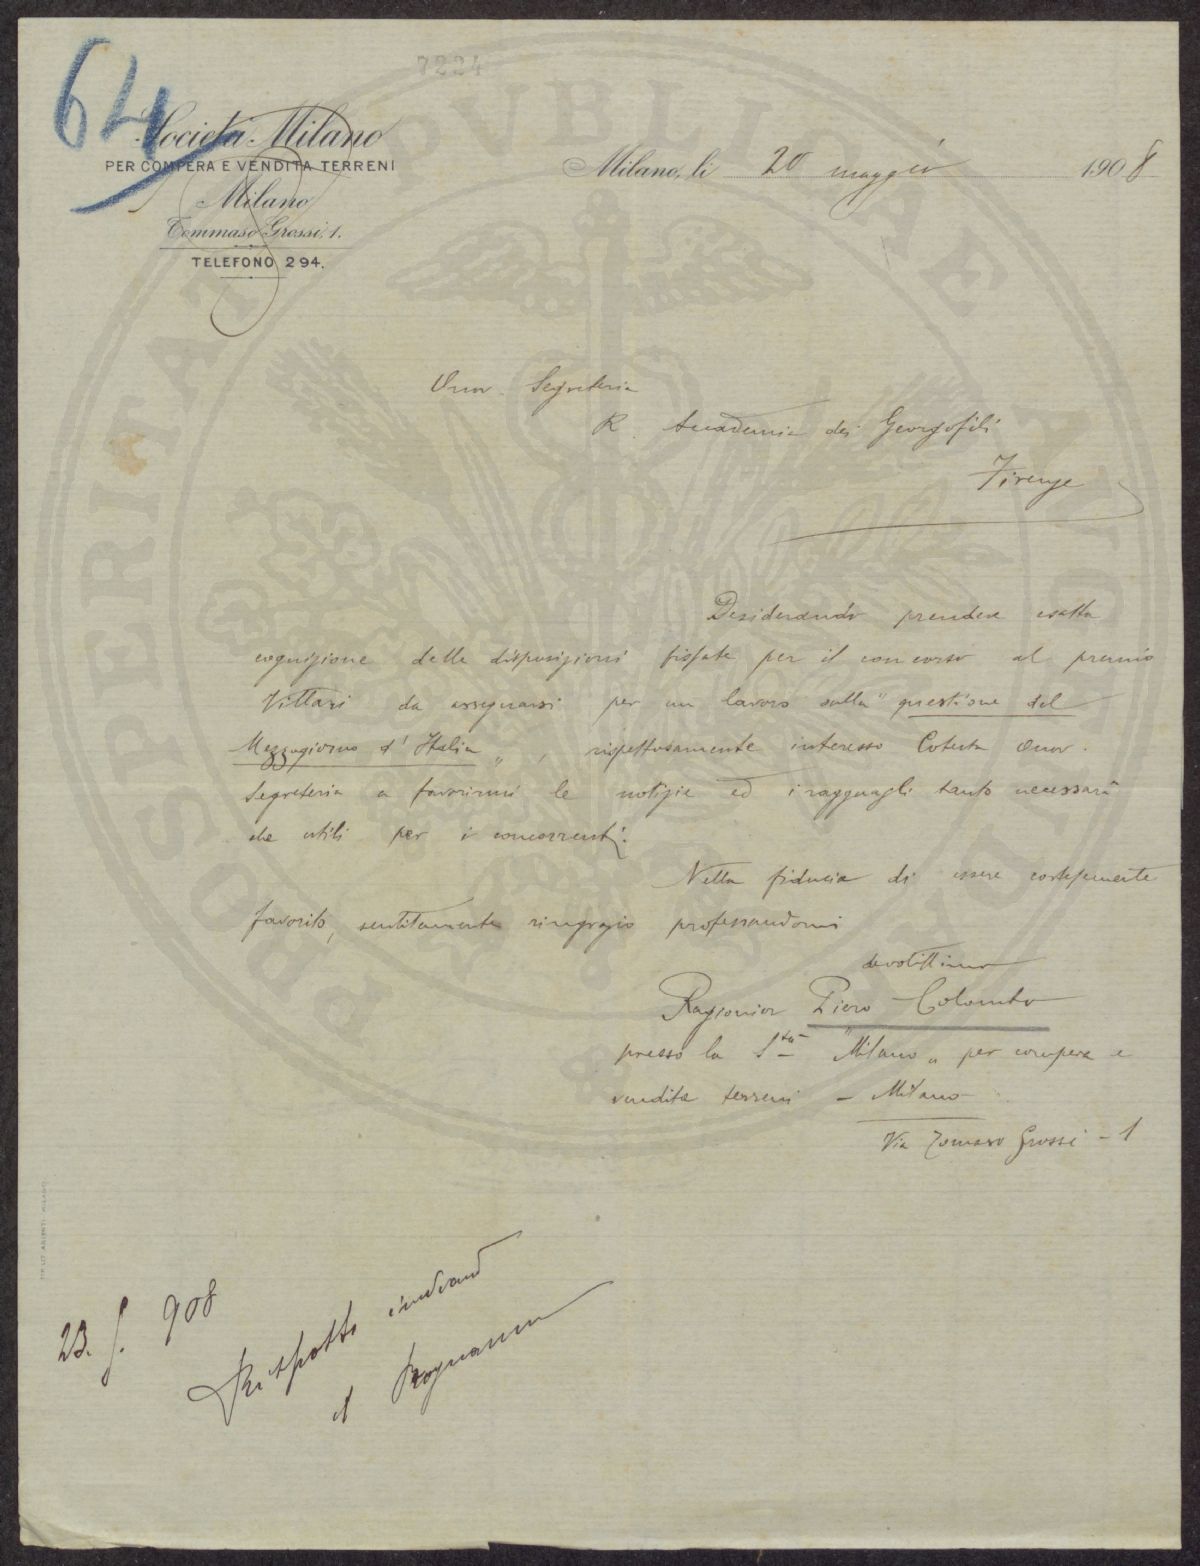 64
7224
Società Milano
PER COMPERA E VENDITA TERRENI
Milano
Tommaso Grossi, 1.
TELEFONO 294.
Milano, li 20 maggio 1908
Onor. Segreteria
R. Accademia dei Georgofili
Firenze
Desiderando prendere esatta
cognizione delle disposizioni fissate per il concorso al premio
Villari da assegnarsi per un lavoro sulla "questione del
Mezzogiorno d'Italia", rispettosamente interesso Cotesta Onor.
Segreteria a favorirmi le notizie ed i ragguagli tanto necessari
che utili per i concorrenti.
Nella fiducia di essere cortesemente
favorito, sentitamente ringrazio professandomi
devotissimo
Ragionier Piero Colombo
presso la S.tà "Milano" per compera e
vendita terreni - Milano
Via Tomaso Grossi - 1
23. 5. 908
Risposto inviand
il Programma
PROSPERITATI PVBLICAE AVGENDAE